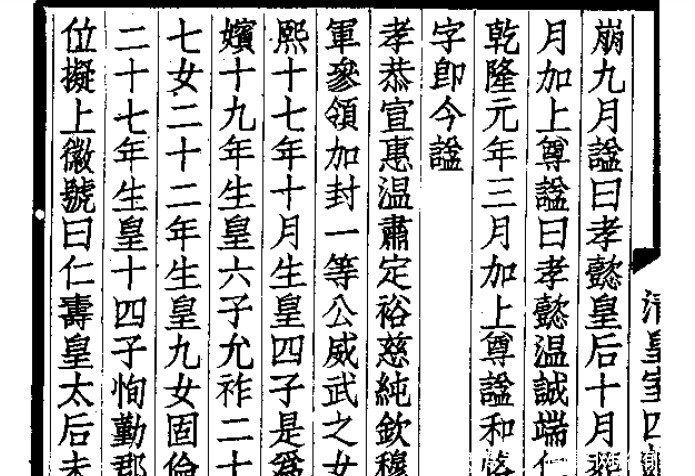 崩九月諡曰孝懿皇后十月
月加上尊諡曰孝懿温誠端仁
乾隆元年三月加上尊諡和
字卽今諡
孝恭宣惠温肅定裕慈純欽穆
軍參領加封一等公威武之女
熙十七年十月生皇四子是爲
嬪十九年生皇六子允祚二十
七女二十二年生皇九女固倫
二十七年生皇十四子恂勤郡
位擬上徽號曰仁壽皇太后未
清皇室四